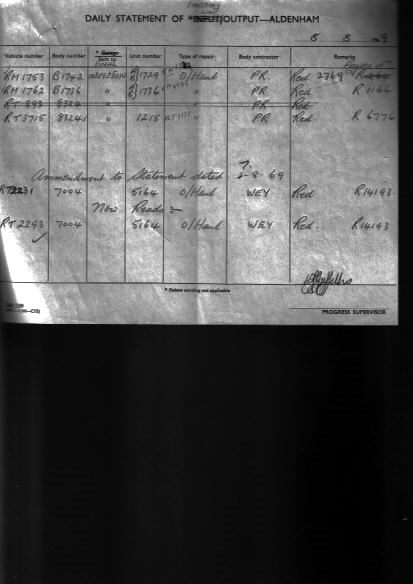 DAILY STATEMENT OF *INPUT/OUTPUT—ALDENHAM
8 8 69
Vehicle number Body number * Garage Sent to FINAL Unit number Type of repair Body contractor Remarks
RM1753 B1742 INSPECTION 1729 O/Haul P.R. Red 2769
RM1762 B1736 " 1736 " PR Red R1166
RT 893 8324 " " PR Red
RT3715 8324 " 1218 " PR Red R 6776
Ammendment to Statement dated 7-8-69
RT2231 7004 5164 O/Haul WEY Red R14193
Now Reads :-
RT2293 7004 5164 O/Haul WEY Red R14193
* Delete wording not applicable
PROGRESS SUPERVISOR